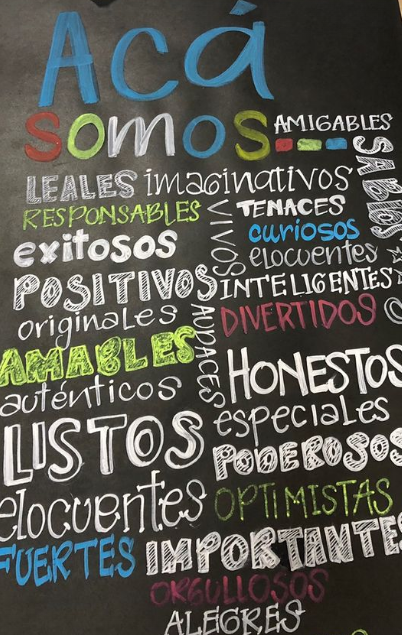 Acá
somos
AMIGABLES
SABIOS
LEALES imaginativos
RESPONSABLES
VIVOS
TENACES
exitosos
curiosos
elocuentes
POSITIVOS
INTELIGENTES
originales
AUDACES
DIVERTIDOS
AMABLES
HONESTOS
auténticos
especiales
LISTOS
PODEROSOS
elocuentes
OPTIMISTAS
FUERTES
IMPORTANTES
ORGULLOSOS
ALEGRES